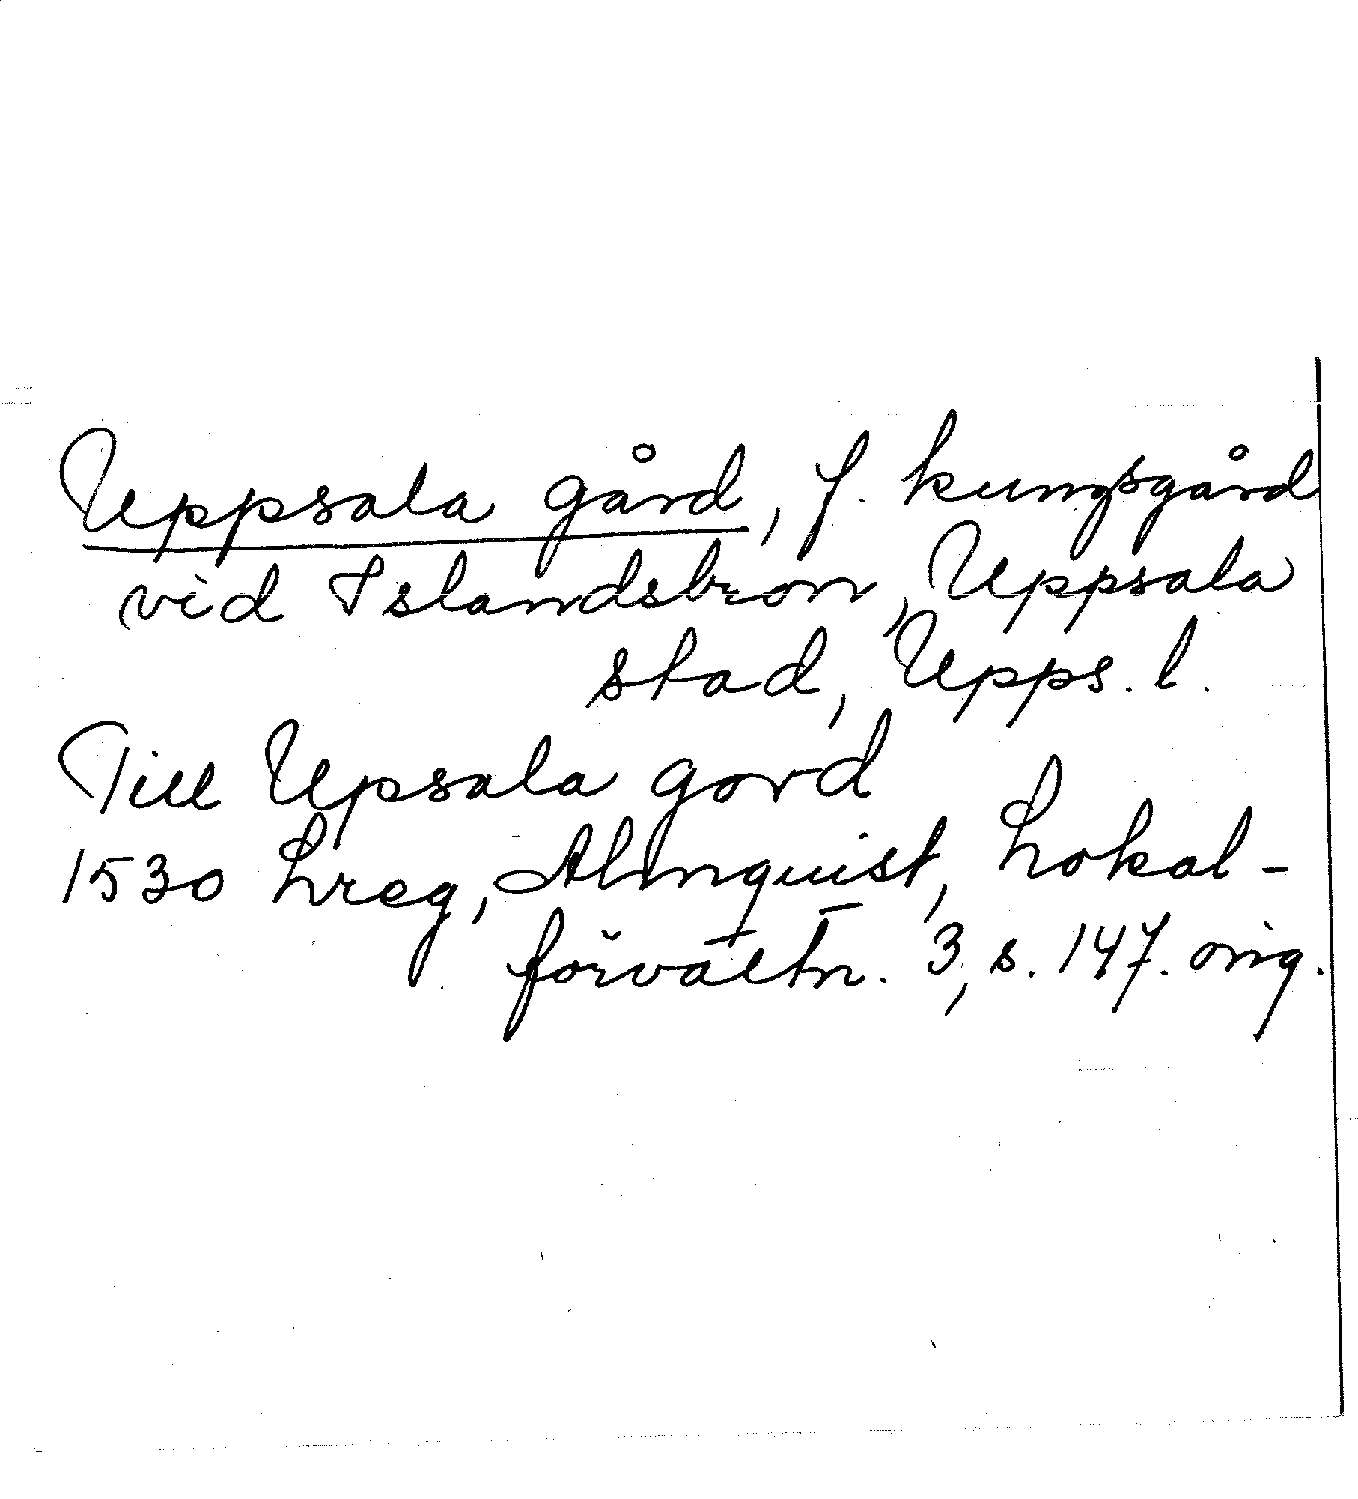 Uppsala gård, f. kungsgård
vid Islandsbron, Uppsala
stad, Upps. l.
Till Upsala gord
1530 Lreg, Almquist, Lokal-
förvältn. 3, s. 147. orig.